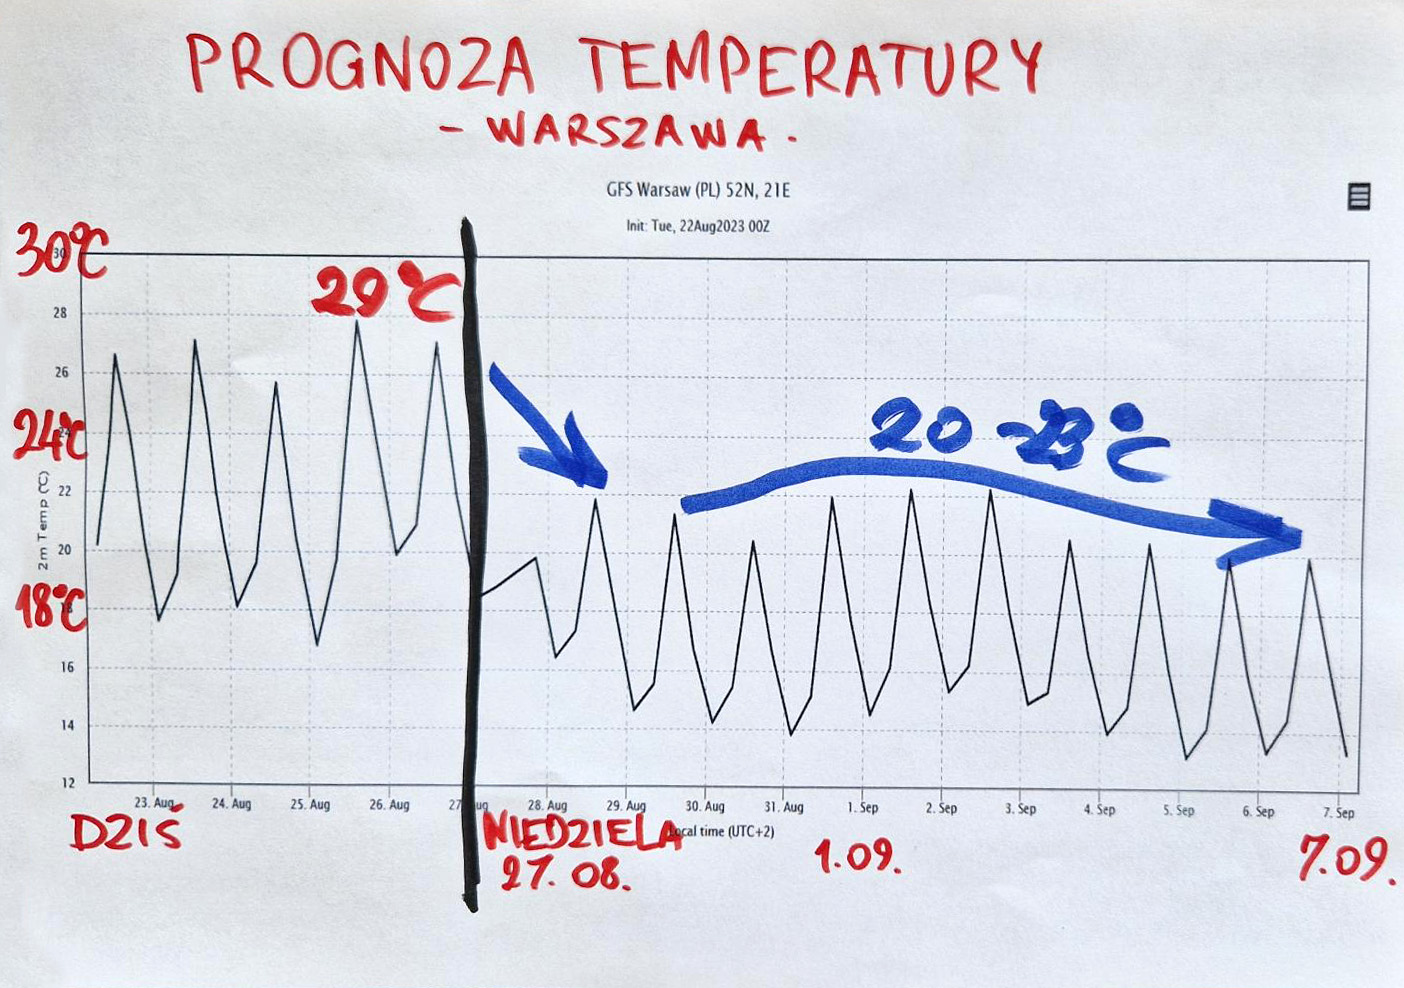 PROGNOZA TEMPERATURY
- WARSZAWA -
GFS Warsaw (PL) 52N, 21E
Init: Tue, 22Aug2023 00Z
30°C
30
29°C
28
26
24°C
24
20-23°C
22
20
18°C
18
16
14
12
2m Temp (°C)
23. Aug 24. Aug 25. Aug 26. Aug 27. Aug 28. Aug 29. Aug 30. Aug 31. Aug 1. Sep 2. Sep 3. Sep 4. Sep 5. Sep 6. Sep 7. Sep
Local time (UTC+2)
DZIŚ
NIEDZIELA
27.08.
1.09.
7.09.